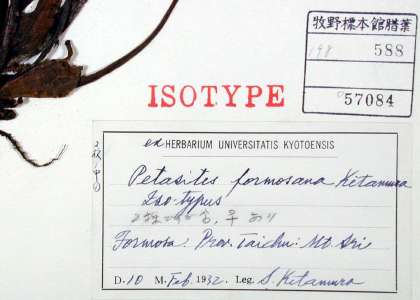 牧野標本館腊葉
588
57084
ISOTYPE
ex HERBARIUM UNIVERSITATIS KYOTOENSIS
Petasites formosana Kitamura
Iso-typus
Formosa: Prov. Taichu: Mt. Ari
D. 10 M. Feb. 1932. Leg. S. Kitamura